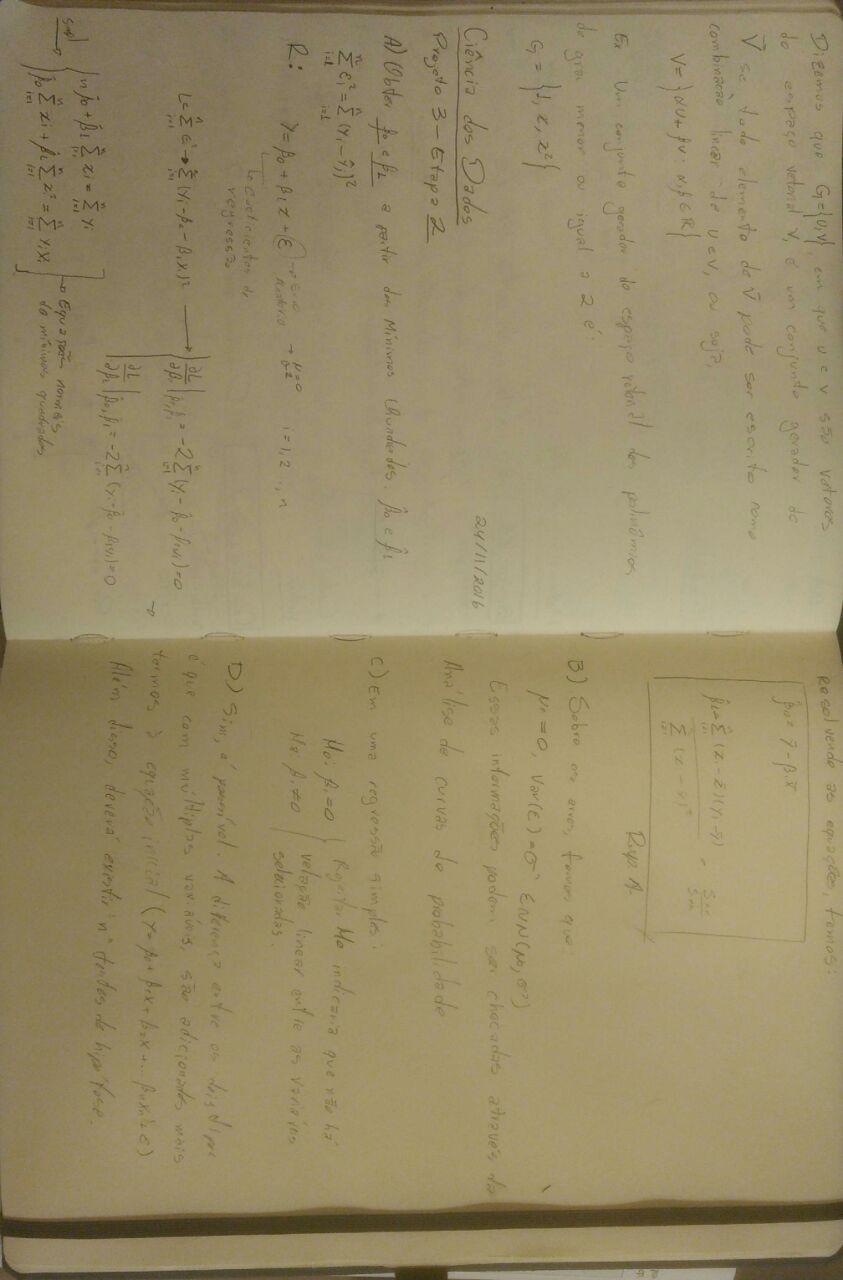 Dizemos que G={u,v}, em que u e v são vetores
do espaço vetorial V, é um conjunto gerador de
V se todo elemento de V pode ser escrito como
combinação linear de u e v, ou seja,
V= {αu+βv: α,β∈ℝ}
Ex Um conjunto gerador do espaço vetorial dos polinômios
de grau menor ou igual a 2 é:
G = {1, x, x²}
Ciência dos Dados 24/11/2016
Projeto 3-Etapa 2
A) Obter β₀ e β₁ a partir dos Mínimos Quadrados. β̂₀ e β̂₁
∑ᵢ₌₁ⁿ εᵢ² = ∑ᵢ₌₁ⁿ (yᵢ - ŷᵢ)²
R: Y = β₀ + β₁x + ε → Erro Aleatório → μ=0 σ² i=1,2 ..., n
↳ coeficientes de
regressão
L = ∑ᵢ₌₁ⁿ ε² → ∑ᵢ₌₁ⁿ (yᵢ-β₀-β₁xᵢ)² → ∂L/∂β₀ |β̂₀,β̂₁ = -2∑ᵢ₌₁ⁿ (yᵢ-β̂₀-β̂₁xᵢ)=0
∂L/∂β₁ |β̂₀,β̂₁ = -2∑ᵢ₌₁ⁿ (yᵢ-β̂₀-β̂₁xᵢ)=0 →
n β̂₀ + β̂₁ ∑ᵢ₌₁ⁿ xᵢ = ∑ᵢ₌₁ⁿ yᵢ
simpl → β̂₀ ∑ᵢ₌₁ⁿ xᵢ + β̂₁ ∑ᵢ₌₁ⁿ xᵢ² = ∑ᵢ₌₁ⁿ yᵢxᵢ → Equações normais
de mínimos quadrados
Resolvendo as equações, temos:
β̂₀ = ȳ - β₁x̄
β̂₁ = ∑ᵢ₌₁ⁿ (x - x̄)(yᵢ - ȳ) / ∑ᵢ₌₁ⁿ (x - x̄)² =
Resp. A.
B) Sobre os erros, temos que:
μ = 0, Var(ε) = σ² ε~N(μ₀, σ²)
Essas informações podem ser checadas através da
Análise de curvas de probabilidade
C) Em uma regressão simples:
H₀: β₁=0 Rejeitar H₀ indicaria que não há
Ha: β₁≠0 relação linear entre as variáveis
selecionadas.
D) Sim, é possível. A diferença entre os dois tipos
é que com múltiplas variáveis, são adicionados mais
termos à equação inicial (y= β₀+ β₁x+ β₂x+... βₙxₙ+ε)
Além disso, deverá existir "n" testes de hipótese.